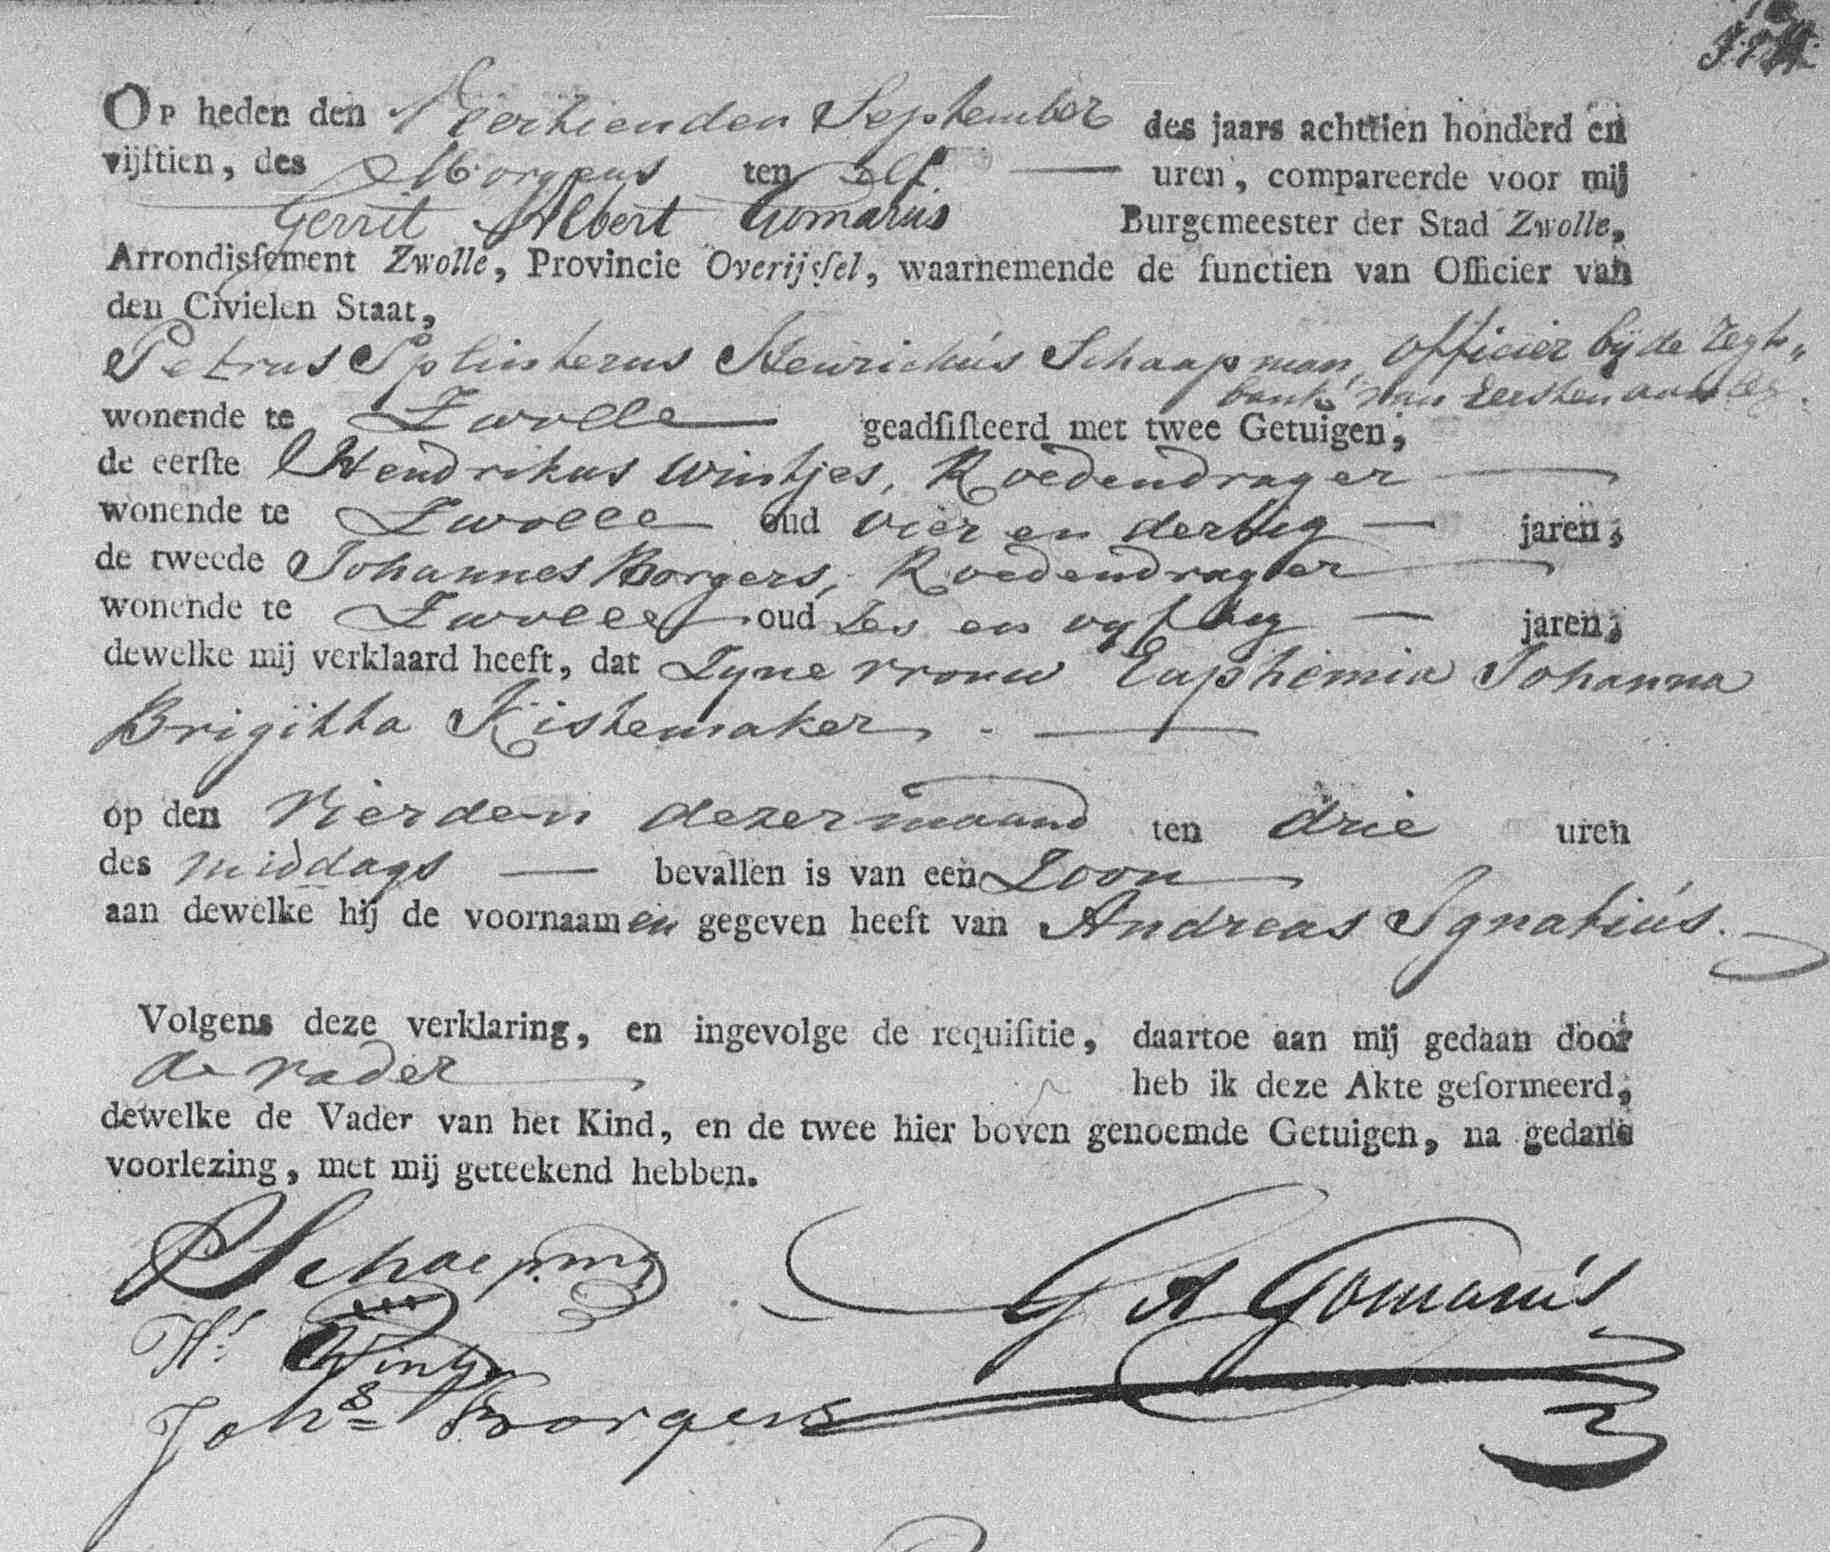 Op heden den Veertienden September des jaars achttien honderd en
vijftien, des Morgens ten Elf uren, compareerde voor mij
Gerrit Albert Gomarus Burgemeester der Stad Zwolle,
Arrondisſement Zwolle, Provincie Overijsſel, waarnemende de functien van Officier van
den Civielen Staat,
Petrus Splinterus Henrichús Schaapman, officier bij de regt-
bank van Eersten aanleg.
wonende te Zwolle geadſiſteerd met twee Getuigen;
de eerſte Hendrikus Wintjes, Roedendrager
wonende te Zwolle oud vier en dertig jaren;
de tweede Johannes Borgers, Roedendrager
wonende te Zwolle oud Zes en vyftig jaren;
dewelke mij verklaard heeft, dat Zyne vrouw Euphemia Johanna
Brigitta Kistemaker
op den Vierden dezer maand ten drie uren
des middags bevallen is van een Zoon
aan dewelke hij de voornaamen gegeven heeft van Andreas Ignatiús.
Volgens deze verklaring, en ingevolge de requiſitie, daartoe aan mij gedaan door
de vader heb ik deze Akte geformeerd,
dewelke de Vader van het Kind, en de twee hier boven genoemde Getuigen, na gedane
voorlezing, met mij geteekend hebben.
PSchaepman
G A Gomarús
Hs. Wintjes
Johs Borgers